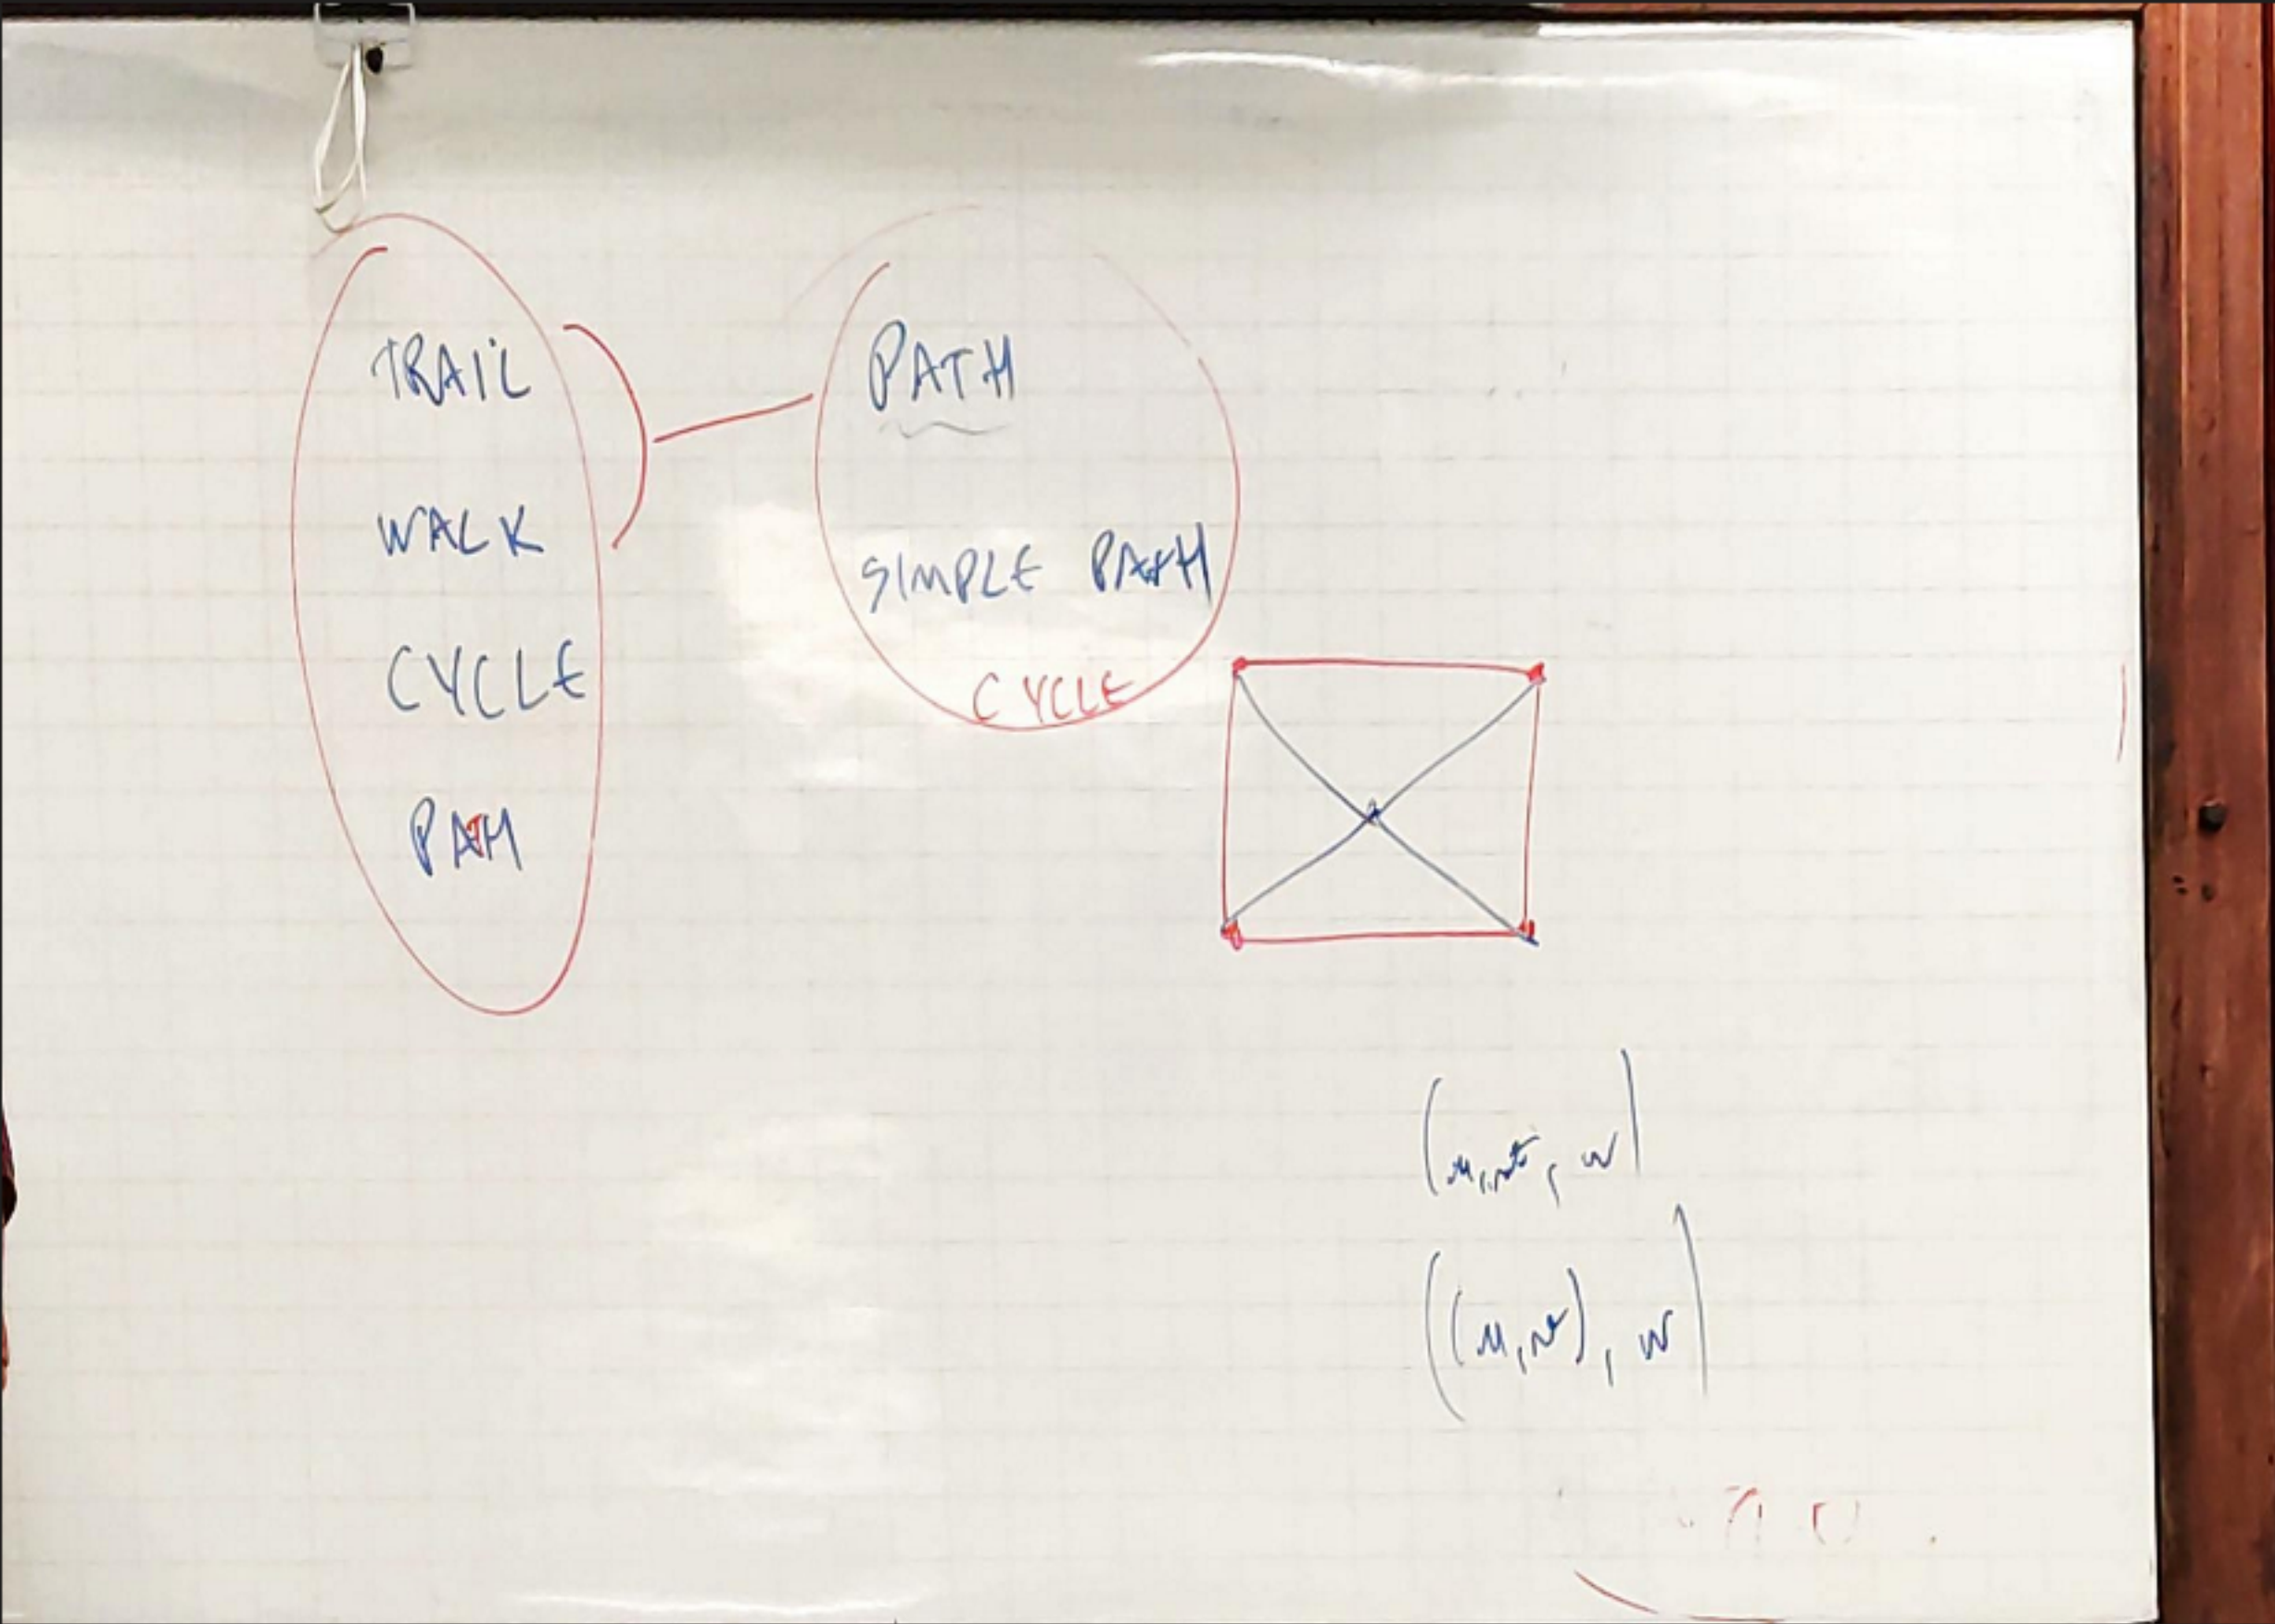 TRAIL
WALK
CYCLE
PATH
PATH
SIMPLE PATH
CYCLE
(u,v, w)
((u,v), w)